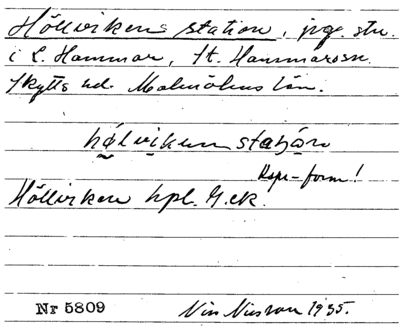 Höllvikens station, jvg. stn.
i L. Hammar, St. Hammars sn.
Skytts hd. Malmöhus län.
hølviken
Rspr-form!
Höllviken hpl. G.ek.
Nr 5809
Nils Nilsson 1935.